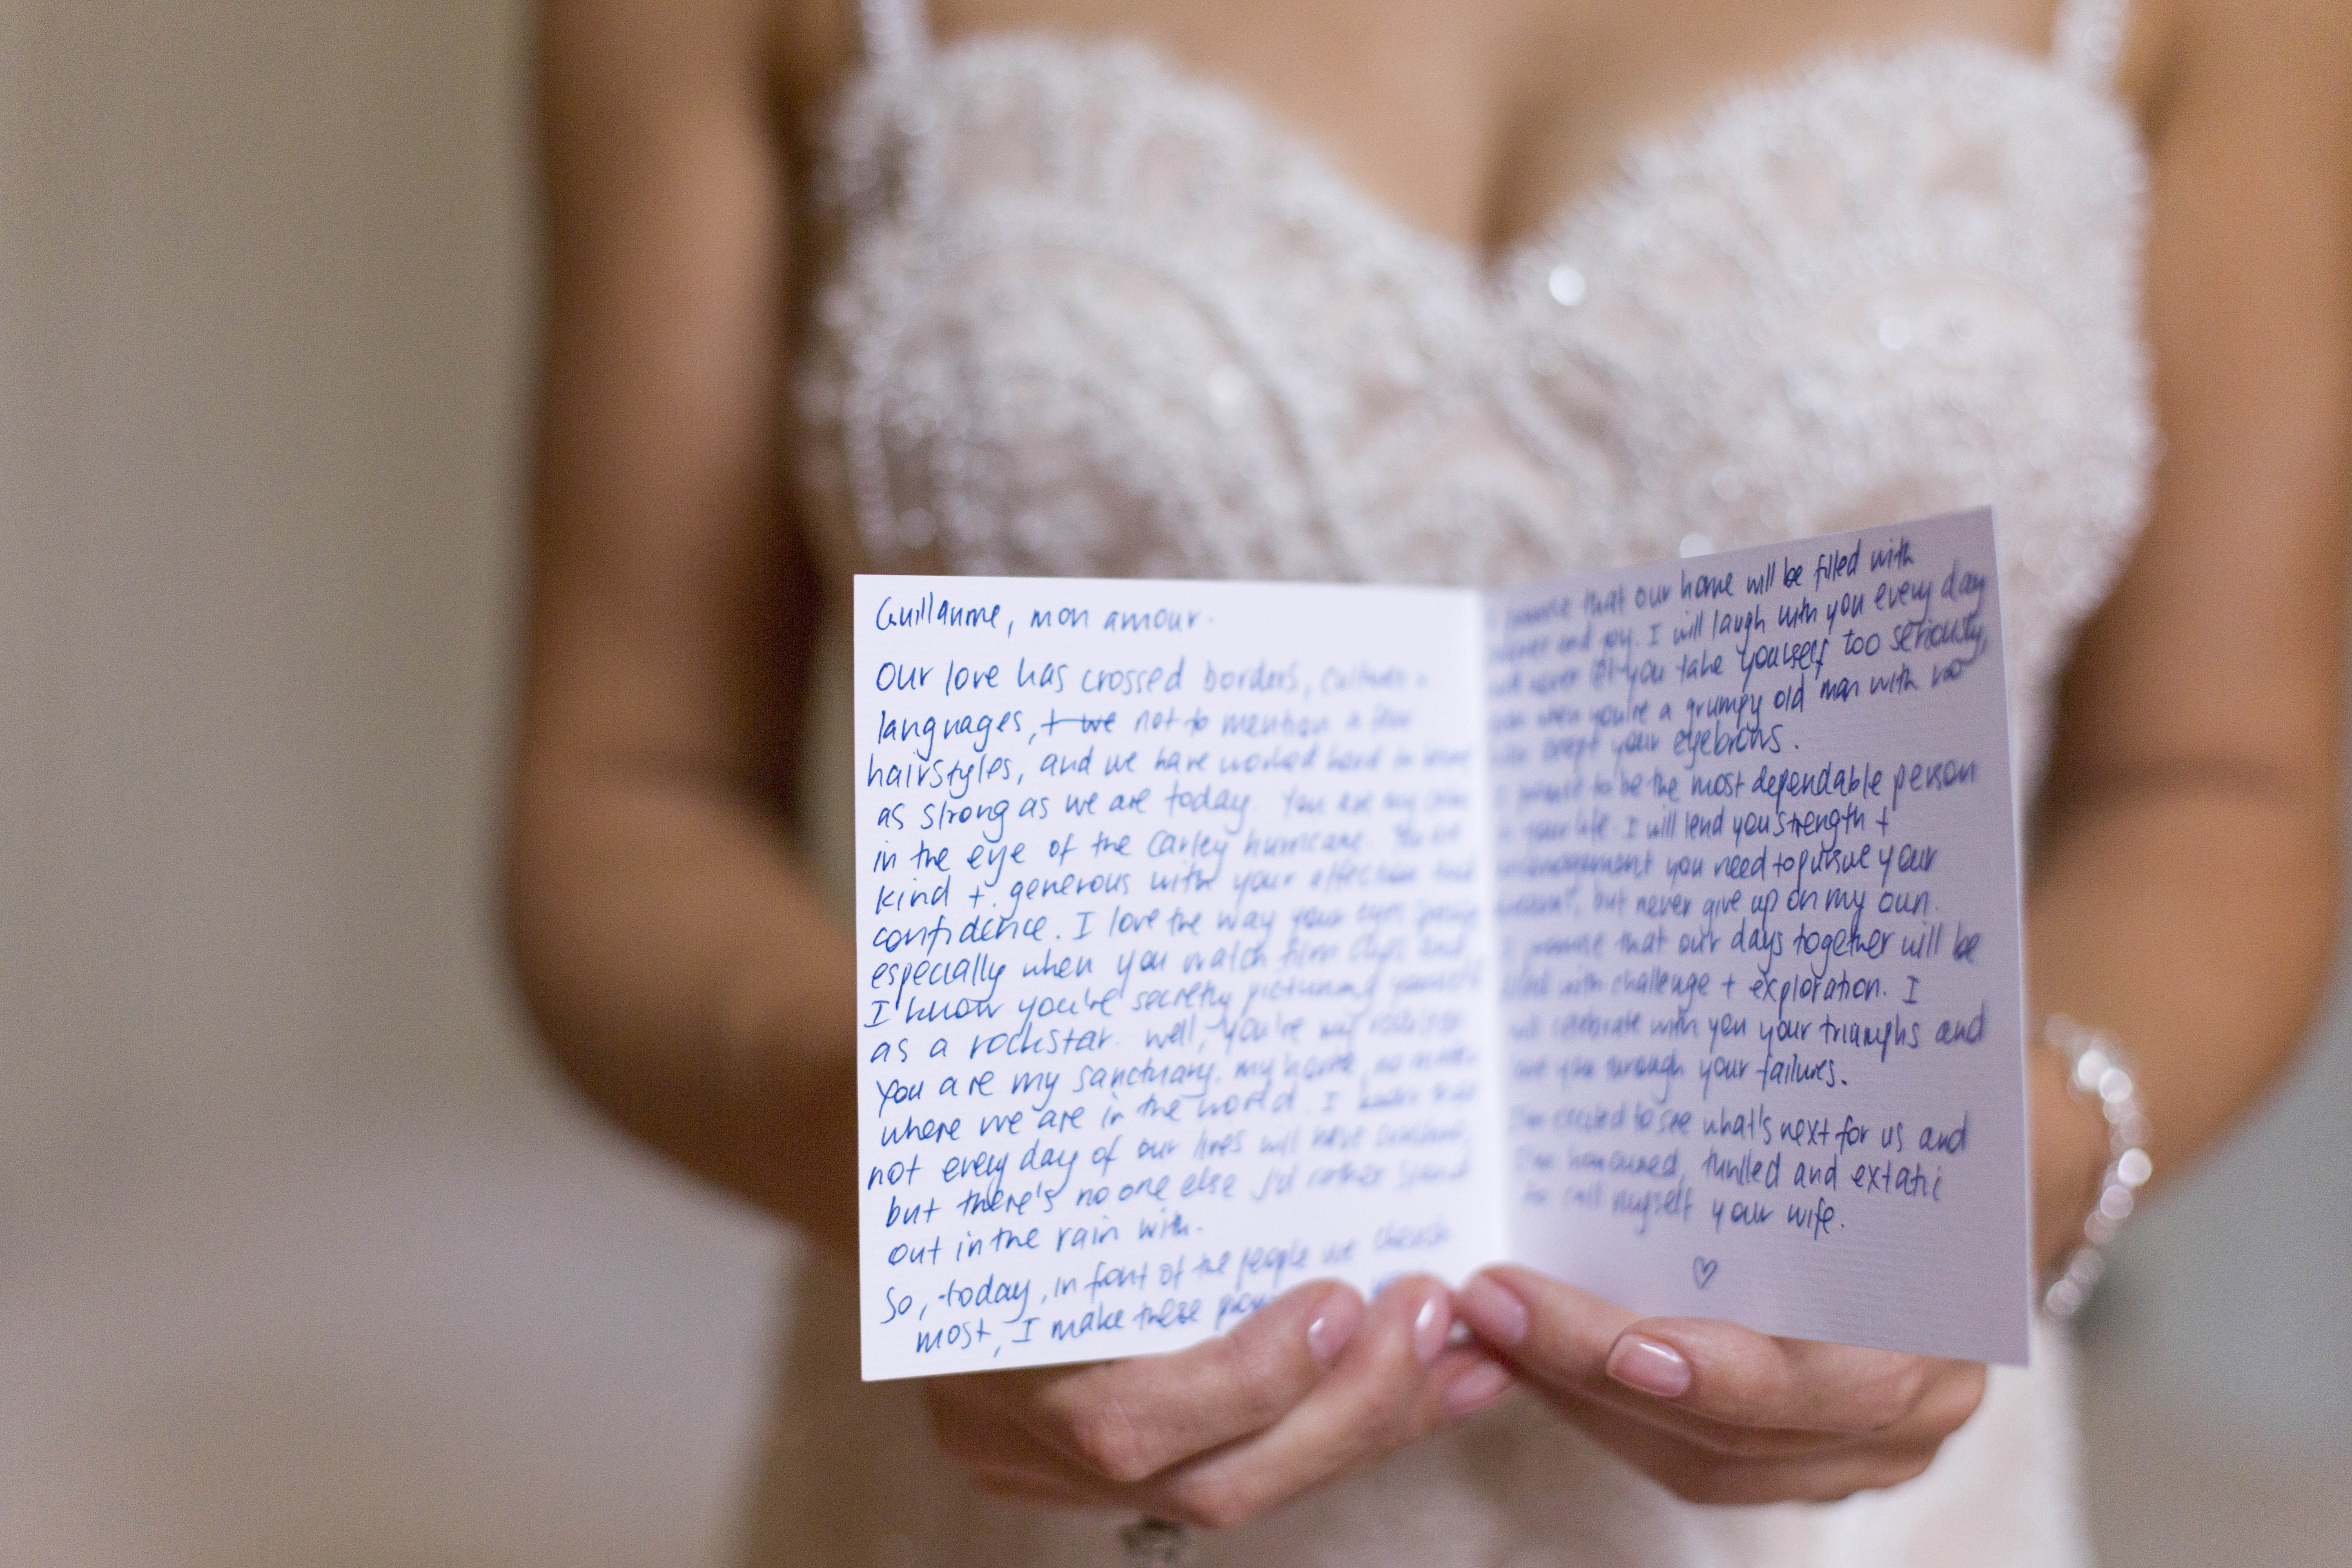 Guillaume, mon amour.
Our love has crossed borders, cultures,
languages, + we not to mention a few
hairstyles, and we have worked hard to
as strong as we are today. You are my calm
in the eye of the Carley hurricane. You are
kind + generous with your affection and
confidence. I love the way your eyes
especially when you watch film clips and
I know you're secretly picturing yourself
as a rockstar. Well, you're my rockstar.
You are my sanctuary, my home, no matter
where we are in the world. I know that
not every day of our lives will have sunshine,
but there's no one else I'd rather stand
out in the rain with.
So, today, in front of the people we cherish
most, I make these
I promise that our home will be filled with
and joy. I will laugh with you every day
and never let you take yourself too seriously,
even when you're a grumpy old man with no
except your eyebrows.
I promise to be the most dependable person
in your life. I will lend you strength +
encouragement you need to pursue your
dreams, but never give up on my own.
I promise that our days together will be
filled with challenge + exploration. I
will celebrate with you your triumphs and
love you through your failures.
I'm excited to see what's next for us and
I'm honoured, thrilled and extatic
to call myself your wife.
♡